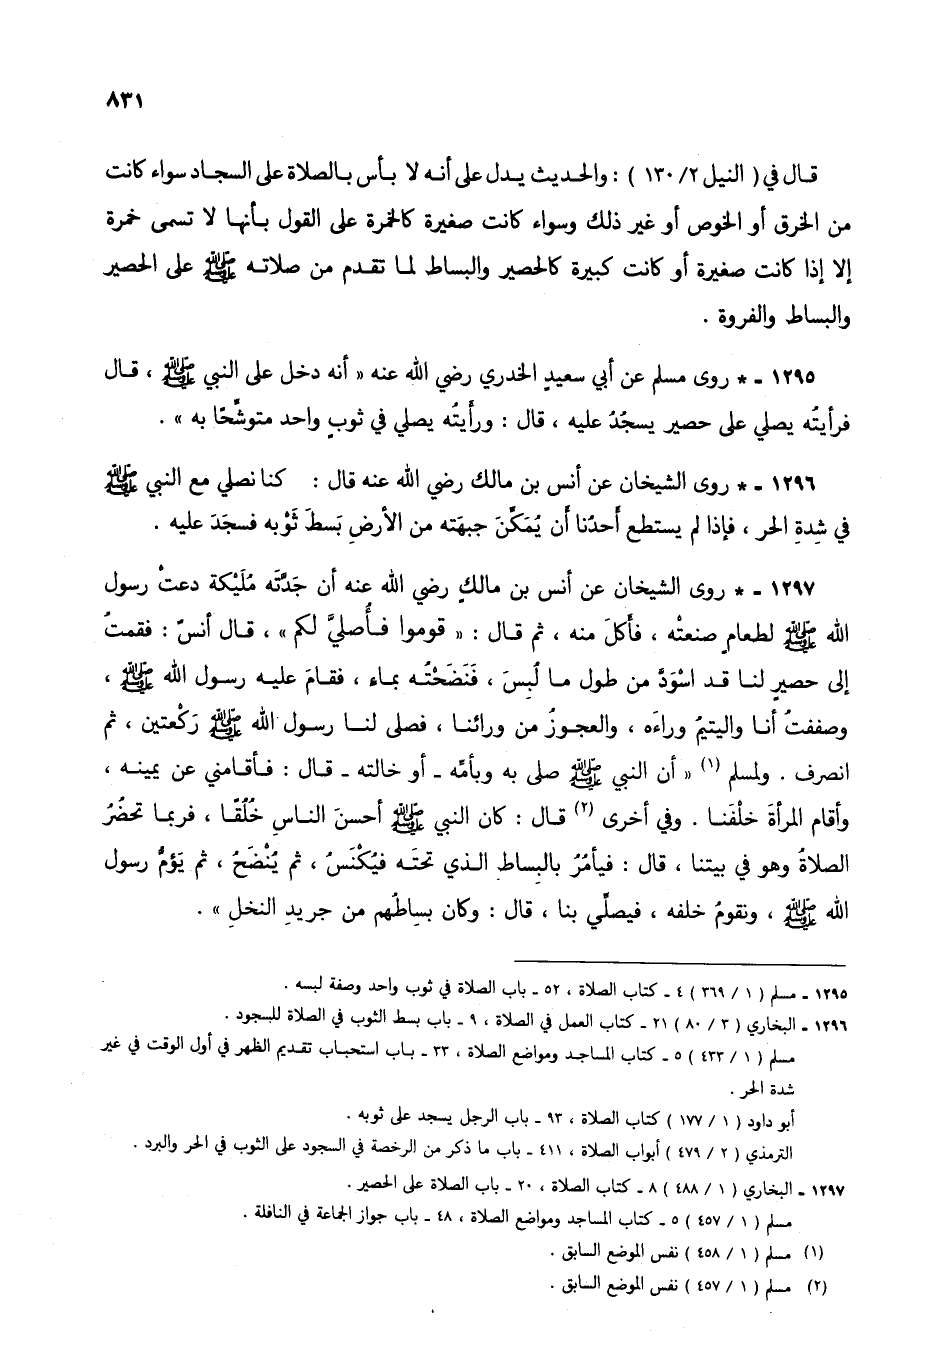 ٨٣١
قـال في ( النيل ٢ / ١٣٠ ) : والحـديث يـدل على أنـه لا بـأس بـالصـلاة على السجـاد سـواء كانت
من الخرق أو الخوص أو غير ذلك وسواء كانت صغيرة كالخمرة على القول بـأنهـا لا تسمى خمرة
إلا إذا كانت صغيرة أو كانت كبيرة كالحصير والبساط لمـا تقـدم من صلاتـه ﷺ على الحصير
والبساط والفروة .
١٢٩٥ - * روى مسلم عن أبي سعيدٍ الخدري رضي الله عنه « أنه دخل على النبي ﷺ ، قـال
فرأيتُه يصلي على حصير يسجُدُ عليه ، قال : ورأيتُه يصلي في ثوبٍ واحد متوشِّحًا به » .
١٢٩٦ - * روى الشيخان عن أنس بن مالك رضي الله عنه قال : كنا نصلي مع النبي ﷺ
في شِدةِ الحر ، فإذا لم يستطع أحدُنا أن يُمَكِّنَ جبهَته من الأرضِ بَسطَ ثَوْبه فسجَدَ عليه .
١٢٩٧ - * روى الشيخان عن أنس بن مالكٍ رضي الله عنه أن جَدَّتَه مُلَيْكة دعتْ رسول
الله ﷺ لطعامٍ صنعتْه ، فأكلَ منه ، ثم قـال : « قوموا فـأُصليَّ لكم » ، قـال أنسٌ : فقمتُ
إلى حصيرٍ لنـا قـد اسْوَدَّ من طول مـا لُبِسَ ، فَنَضَحْتُـه بمـاء ، فقـامَ عليـه رسـول الله ﷺ ،
وصففتُ أنـا واليتيمُ وراءَه ، والعجـوزُ من ورائنـا ، فصلى لنـا رسـول الله ﷺ رَكْعتين ، ثم
انصرف . ولمسلم (١) « أن النبي ﷺ صلى به وبأمّه ـ أو خالته ـ قـال : فـأقـامني عن يمينـه ،
وأقام المرأةَ خلْفَنـا . وفي أخرى (٢) قـال : كان النبي ﷺ أحسنَ النـاسِ خُلُقًـا ، فربمـا تحضُرُ
الصلاةُ وهو في بيتنا ، قال : فيأمُرُ بالبساط الـذي تحتَـه فيُكْنَسُ ، ثم يُنْضَحُ ، ثم يَؤمُّ رسول
الله ﷺ ، ونقومُ خلفه ، فيصلِّي بنا ، قال : وكان بساطُهم من جريدِ النخلِ » .
١٢٩٥ ـ مسلم ( ١ / ٣٦٩ ) ٤ ـ كتاب الصلاة ، ٥٢ ـ باب الصلاة في ثوب واحد وصفة لبسه .
١٢٩٦ ـ البخاري ( ٣ / ٨٠ ) ٢١ ـ كتاب العمل في الصلاة ، ٩ ـ باب بسط الثوب في الصلاة للسجود .
مسلم ( ١ / ٤٣٣ ) ٥ ـ كتاب المساجد ومواضع الصلاة ، ٣٣ ـ بـاب استحبـاب تقـديم الظهر في أول الوقت في غير
شدة الحر .
أبو داود ( ١ / ١٧٧ ) كتاب الصلاة ، ٩٣ ـ باب الرجل يسجد على ثوبه .
الترمذي ( ٢ / ٤٧٩ ) أبواب الصلاة ، ٤١١ ـ باب ما ذكر من الرخصة في السجود على الثوب في الحر والبرد .
١٢٩٧ ـ البخاري ( ١ / ٤٨٨ ) ٨ ـ كتاب الصلاة ، ٢٠ ـ باب الصلاة على الحصير .
مسلم ( ١ / ٤٥٧ ) ٥ ـ كتاب المساجد ومواضع الصلاة ، ٤٨ ـ باب جواز الجماعة في النافلة .
(١) مسلم ( ١ / ٤٥٨ ) نفس الموضع السابق .
(٢) مسلم ( ١ / ٤٥٧ ) نفس الموضع السابق .